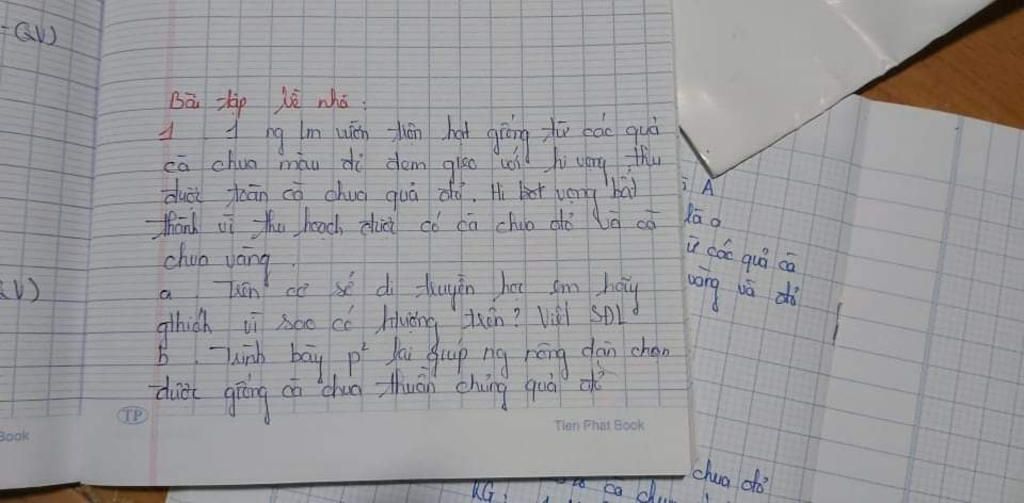 = QV)
Bài tập về nhà :
1 1 ng lm vườn trộn hạt giống từ các quả
cà chua màu đỏ đem gieo với hi vọng thu
được toàn cà chua quả đỏ. Hi vọng bất
thành vì thu hoạch được có cà chua đỏ và cà
chua vàng.
a Trên cơ sở di truyền học em hãy
gthích vì sao có htượng trên? Viết SĐL
b. Trình bày p² lai giúp ng nông dân chọn
được giống cà chua thuần chủng quả đỏ
V)
TP
Tien Phat Book
Book
A
các quả cà
vàng và đỏ
chua đỏ
KG :